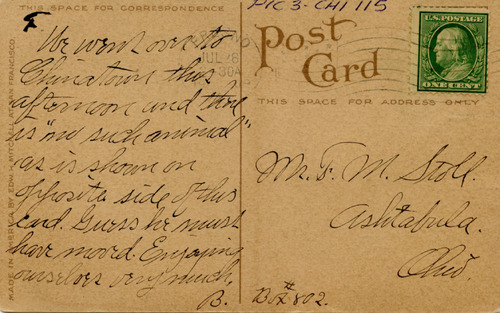 THIS SPACE FOR CORRESPONDENCE
We went over to
Chinatown this
afternoon and there
is "no such animal"
as is shown on
opposite side of this
card. Guess he must
have moved. Enjoying
ourselves very much.
B.
MADE IN AMERICA BY EDW. H. MITCHELL, SAN FRANCISCO
PIC 3-CHI 115
JUL
30A
Post
Card
U.S. POSTAGE
ONE CENT
THIS SPACE FOR ADDRESS ONLY
Mr. F. M. Stoll.
Ashtabula.
Ohio.
Box # 802.